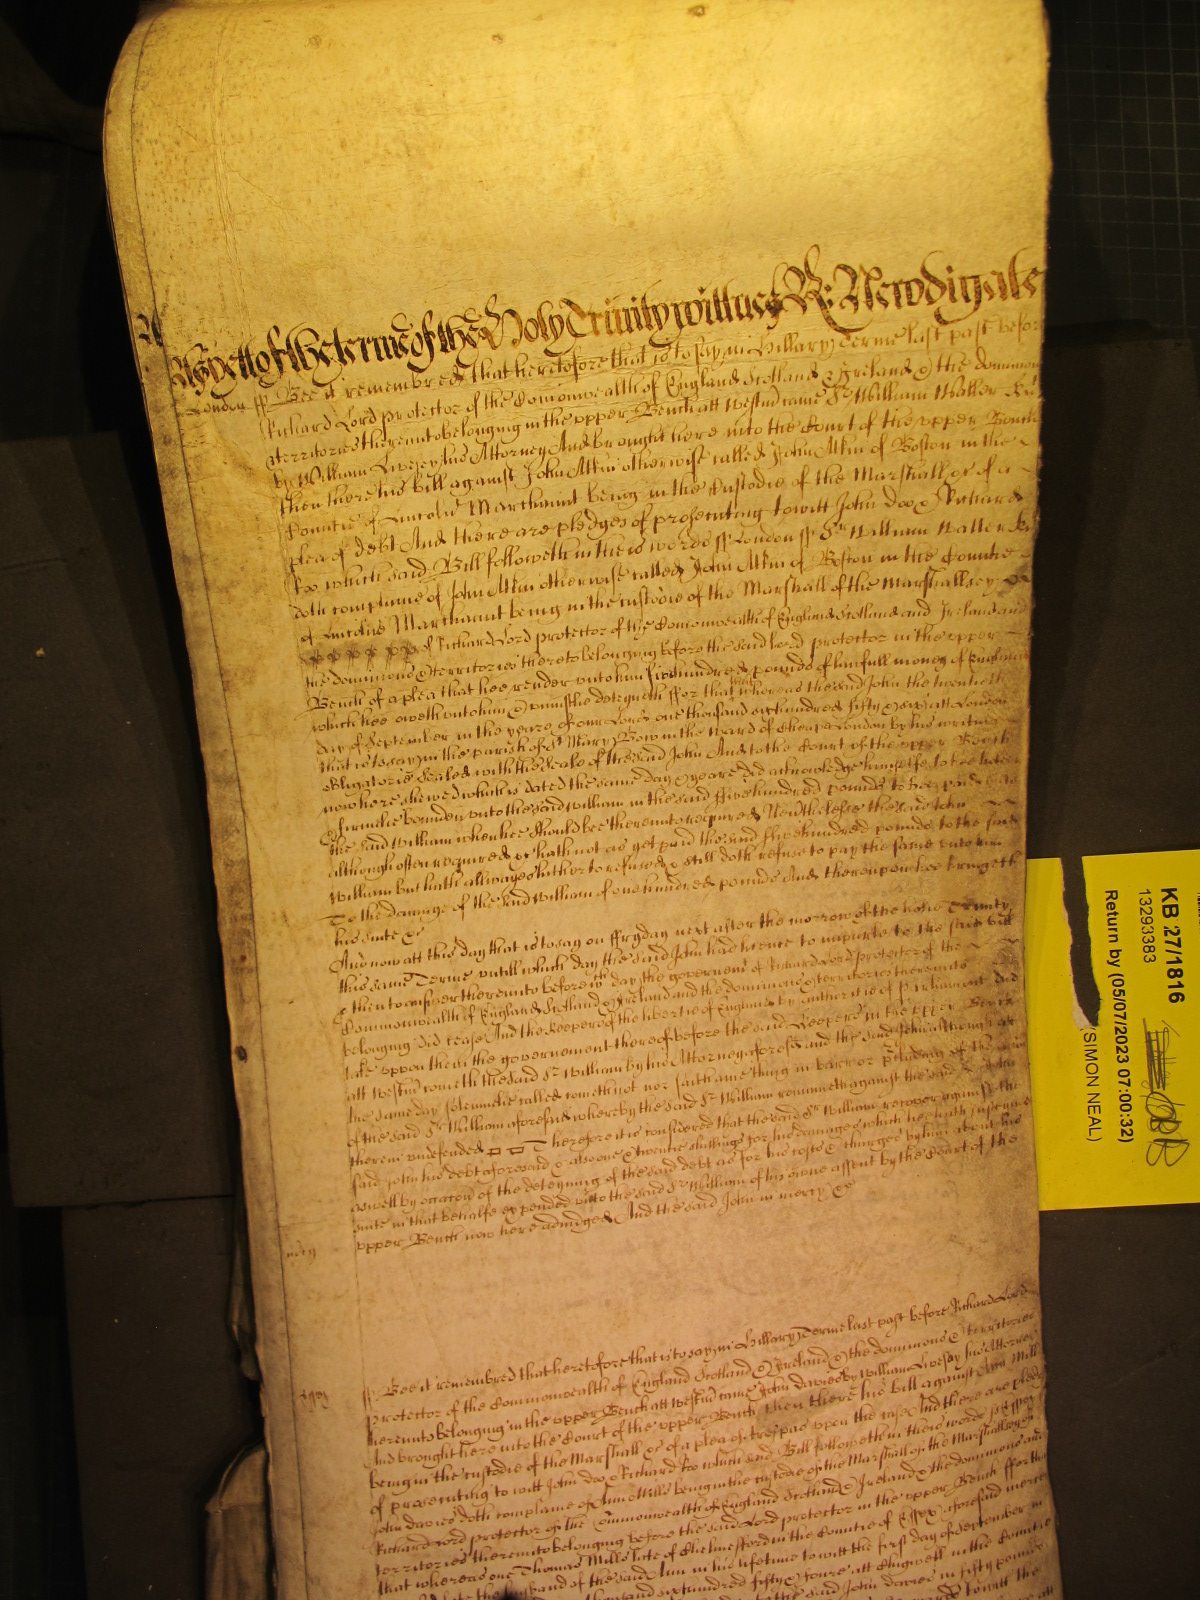 As yett of the terme of the Holy Trinity wittnes R: Newdigate
London ss Bee it remembred that heretofore that is to say in Hillary Terme last past before
Richard Lord protector of the Comonwealth of England Scotland & Ireland & the dominions
& territories thereunto belonging in the upper Bench att Westm̃ came Sr William Waller Kt
by William Livesey his Attorney And brought here into the Court of the upper Bench
then there his bill against John Atkin otherwise called John Atkin of Boston in the
Countie of Lincolne Marchaunt being in the custodie of the Marshall &c of a
plea of debt And there are pledges of prosecuting to witt John Doo & Richard
Roo which said Bill followeth in theis words ss London ss Sr William Waller Kt
doth complaine of John Atkin otherwise called John Atkin of Boston in the Countie
of Lincolne Marchaunt being in the custodie of the Marshall of the Marshallsey
of Richard Lord protector of the Comonwealth of England Scotland and Ireland and
the dominions & territories thereto belonging before the said Lord protector in the upper
Bench of a plea that hee render unto him five hundred pounds of lawfull money of England
which hee oweth unto him & uniustlie deteyneth ffor that whereas the said John the twentieth
day of September in the yeare of our Lord one thousand six hundred fifty & six att London
that is to say in the parish of St Mary Bow in the ward of Cheape London by his writing
obligatorie sealed with the seale of the said John And to the Court of the upper Bench
now here shewed which is dated the same day & yeare did acknowledge himselfe to be held
& firmelie bounden unto the said William in the said ffive hundred pounds to bee paid unto
the said William when hee should bee thereunto required Neverthelesse the said John
although often required &c hath not as yet paid the said ffive hundred pounds to the said
William but hath allwayes hitherto refused & still doth refuse to pay the same unto him
To the damage of the said William of one hundred pounds And thereupon hee bringeth
his suite &c
And now att this day that is to say on ffryday next after the morrow of the holie Trinity
this same Terme untill which day the said John had licence to imparle to the said bill
& then to answer thereunto before wch day the governemt of Richard Lord protector of the
Commonwealth of England Scotland & Ireland and the dominions & territories thereunto
belonging did cease And the Keepers of the libertie of England by authoritie of Parliament did
take uppon them the governement thereof before the said Keepers in the upper Bench
att Westm̃ cometh the said Sr William by his Attorney aforesaid And the said John although att
the same day solemnelie called cometh not nor saith anie thing in barr or
of the said Sr William aforesaid whereby the said Sr William remaineth against the said John
therein undefended Therefore it is considered that the said Sr William recover against the
said John his debt aforesaid & alsoe twentie shillings for his damages which hee hath susteyned
aswell by occacion of the deteyning of the said debt as for his costs & charges by him about his
suite in that behalfe expended unto the said Sr William of his owne assent by the Court of the
upper Bench now here adiudged And the said John in mercy &c
Essex ss Bee it remembred that heretofore that is to say in Hillary Terme last past before Richard Lord
protector of the Commonwealth of England Scotland & Ireland & the dominions & territories
thereunto belonging in the upper Bench att Westm̃ came John Davies by William Livesay his Attorney
And brought here into the Court of the upper Bench then there his bill against Ann Mills
being in the custodie of the Marshall &c of a plea of trespas upon the case And there are pledges
of prosecuting to witt John Doo & Richard Roo which said Bill followeth in theis words ss Essex ss
John Davies doth complaine of Ann Mills being in the custodie of the Marshall of the Marshallsey of
Richard Lord protector of the Commonwealth of England Scotland & Ireland & the dominions and
territories thereunto belonging before the said Lord protector in the upper Bench ffor that
that whereas one Thomas Mills late of Chelmesford in the Countie of Essex aforesaid
husband of the said Ann in his lifetime to witt the first day of September in
thousand six hundred fifty & foure att Chigwell in the Countie
the said John Davies in fifty pounds
KB 27/1816
13293383
Return by (05/07/2023 07:00:32)
(SIMON NEAL)